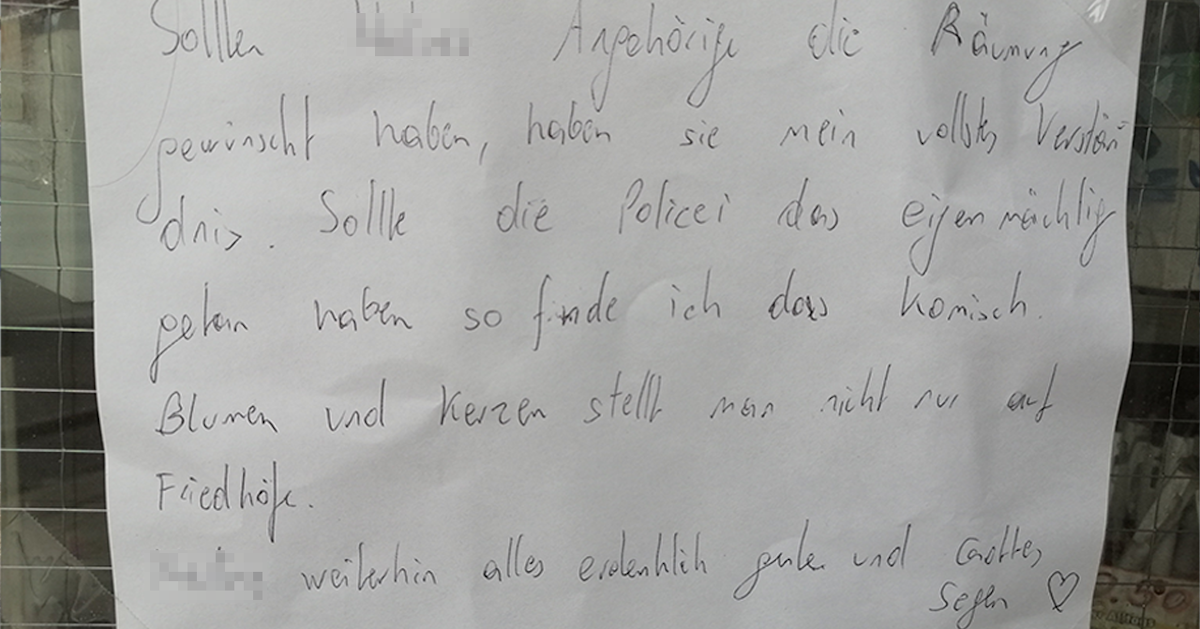 Sollten Angehörige die Räumung
gewünscht haben, haben sie mein vollstes Verstän=
dnis. Sollte die Policei das eigenmächtig
getan haben so finde ich das komisch.
Blumen und Kerzen stellt man nicht nur auf
Friedhöfe.
weiterhin alles erdenklich gute und Gottes
Segen ♡